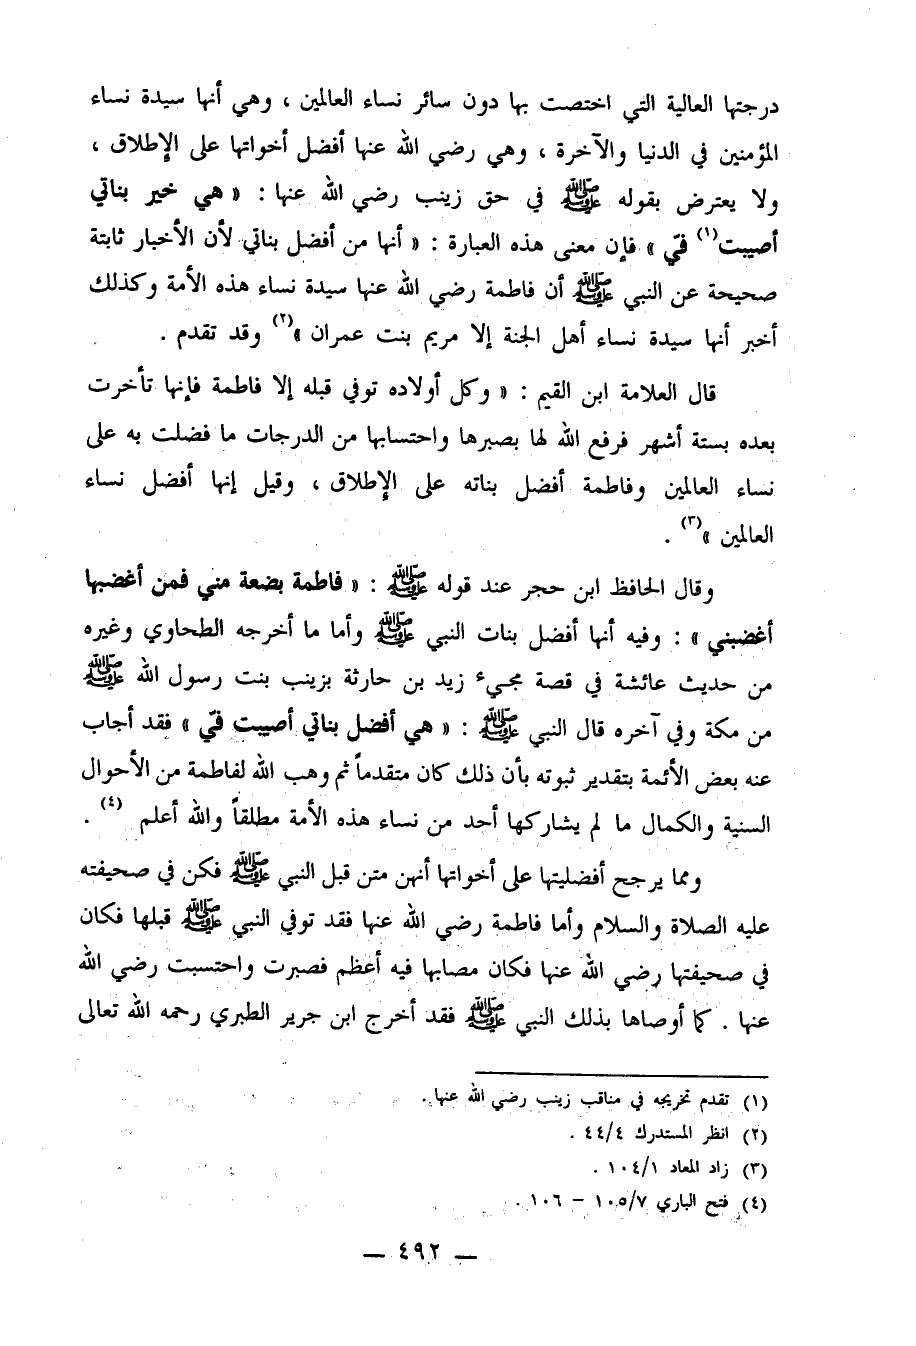 درجتها العالية التي اختصت بها دون سائر نساء العالمين ، وهي أنها سيدة نساء
المؤمنين في الدنيا والآخرة ، وهي رضي الله عنها أفضل أخواتها على الإطلاق ،
ولا يعترض بقوله ﷺ في حق زينب رضي الله عنها : « هي خير بناتي
أصيبت(١) فيّ » فإن معنى هذه العبارة : « أنها من أفضل بناتي لأن الأخبار ثابتة
صحيحة عن النبي ﷺ أن فاطمة رضي الله عنها سيدة نساء هذه الأمة وكذلك
أخبر أنها سيدة نساء أهل الجنة إلا مريم بنت عمران »(٢) وقد تقدم .
قال العلامة ابن القيم : « وكل أولاده توفي قبله إلا فاطمة فإنها تأخرت
بعده بستة أشهر فرفع الله لها بصبرها واحتسابها من الدرجات ما فضلت به على
نساء العالمين وفاطمة أفضل بناته على الإطلاق ، وقيل إنها أفضل نساء
العالمين »(٣) .
وقال الحافظ ابن حجر عند قوله ﷺ : « فاطمة بضعة مني فمن أغضبها
أغضبني » : وفيه أنها أفضل بنات النبي ﷺ وأما ما أخرجه الطحاوي وغيره
من حديث عائشة في قصة مجيء زيد بن حارثة بزينب بنت رسول الله ﷺ
من مكة وفي آخره قال النبي ﷺ : « هي أفضل بناتي أصيبت فيّ » فقد أجاب
عنه بعض الأئمة بتقدير ثبوته بأن ذلك كان متقدماً ثم وهب الله لفاطمة من الأحوال
السنية والكمال ما لم يشاركها أحد من نساء هذه الأمة مطلقاً والله أعلم (٤) .
ومما يرجح أفضليتها على أخواتها أنهن متن قبل النبي ﷺ فكن في صحيفته
عليه الصلاة والسلام وأما فاطمة رضي الله عنها فقد توفي النبي ﷺ قبلها فكان
في صحيفتها رضي الله عنها فكان مصابها فيه أعظم فصبرت واحتسبت رضي الله
عنها . كما أوصاها بذلك النبي ﷺ فقد أخرج ابن جرير الطبري رحمه الله تعالى
(١) تقدم تخريجه في مناقب زينب رضي الله عنها .
(٢) انظر المستدرك ٤/٤٤ .
(٣) زاد المعاد ١/١٠٤ .
(٤) فتح الباري ٧/١٠٥ – ١٠٦ .
— ٤٩٢ —